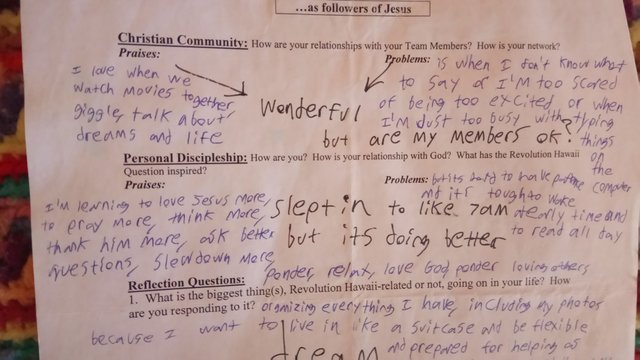 ...as followers of Jesus
Christian Community: How are your relationships with your Team Members? How is your network?
Praises:
I love when we
watch movies together,
giggle, talk about
dreams and life
Wonderful
Problems: is when I don't know what
to say or I'm too scared
of being too excited or when
I'm just too busy with typing
things
on
the
computer
but are my members ok?
Personal Discipleship: How are you? How is your relationship with God? What has the Revolution Hawaii
Question inspired?
Praises:
I'm learning to love Jesus more,
to pray more, think more,
thank him more, ask better
questions, slow down more,
ponder, relax, love God ponder loving others
Problems: but its hard to have
and its tough to wake
at early time and
to read all day
slept in to like 7am
but its doing better
Reflection Questions:
1. What is the biggest thing(s), Revolution Hawaii-related or not, going on in your life? How
are you responding to it? organizing everything I have, including my photos
because I want to live in like a suitcase and be flexible
and prepared for helping as
dream